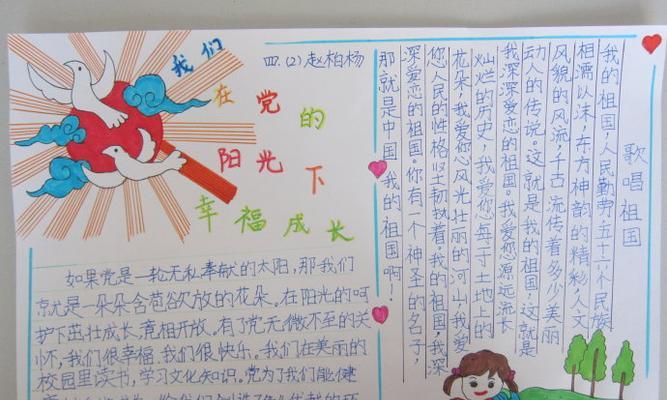 我们
在党的
阳光下
幸福成长
四.(2)赵柏杨
歌唱祖国
我的祖国,人民勤劳五十六个民族
相濡以沫,东方神韵的精彩人文
风貌的风流,千古流传着多少美丽
动人的传说。这就是我的祖国,这就是
我深深爱恋的祖国。我爱您源远流长
灿烂的历史,我爱您每寸土地上的
花朵,我爱您风光壮丽的河山,我爱
您人民的性格坚韧执着。我的祖国,我深
深爱恋的祖国。你有一个神圣的名子,
那就是中国!我的祖国啊!
如果党是一轮无私奉献的太阳,那我们
就是一朵朵含苞欲放的花朵。在阳光的呵
护下茁壮成长,竞相开放。有了党无微不至的关
怀,我们很幸福,我们很快乐。我们在美丽的
校园里读书,学习文化知识。党为了我们能健